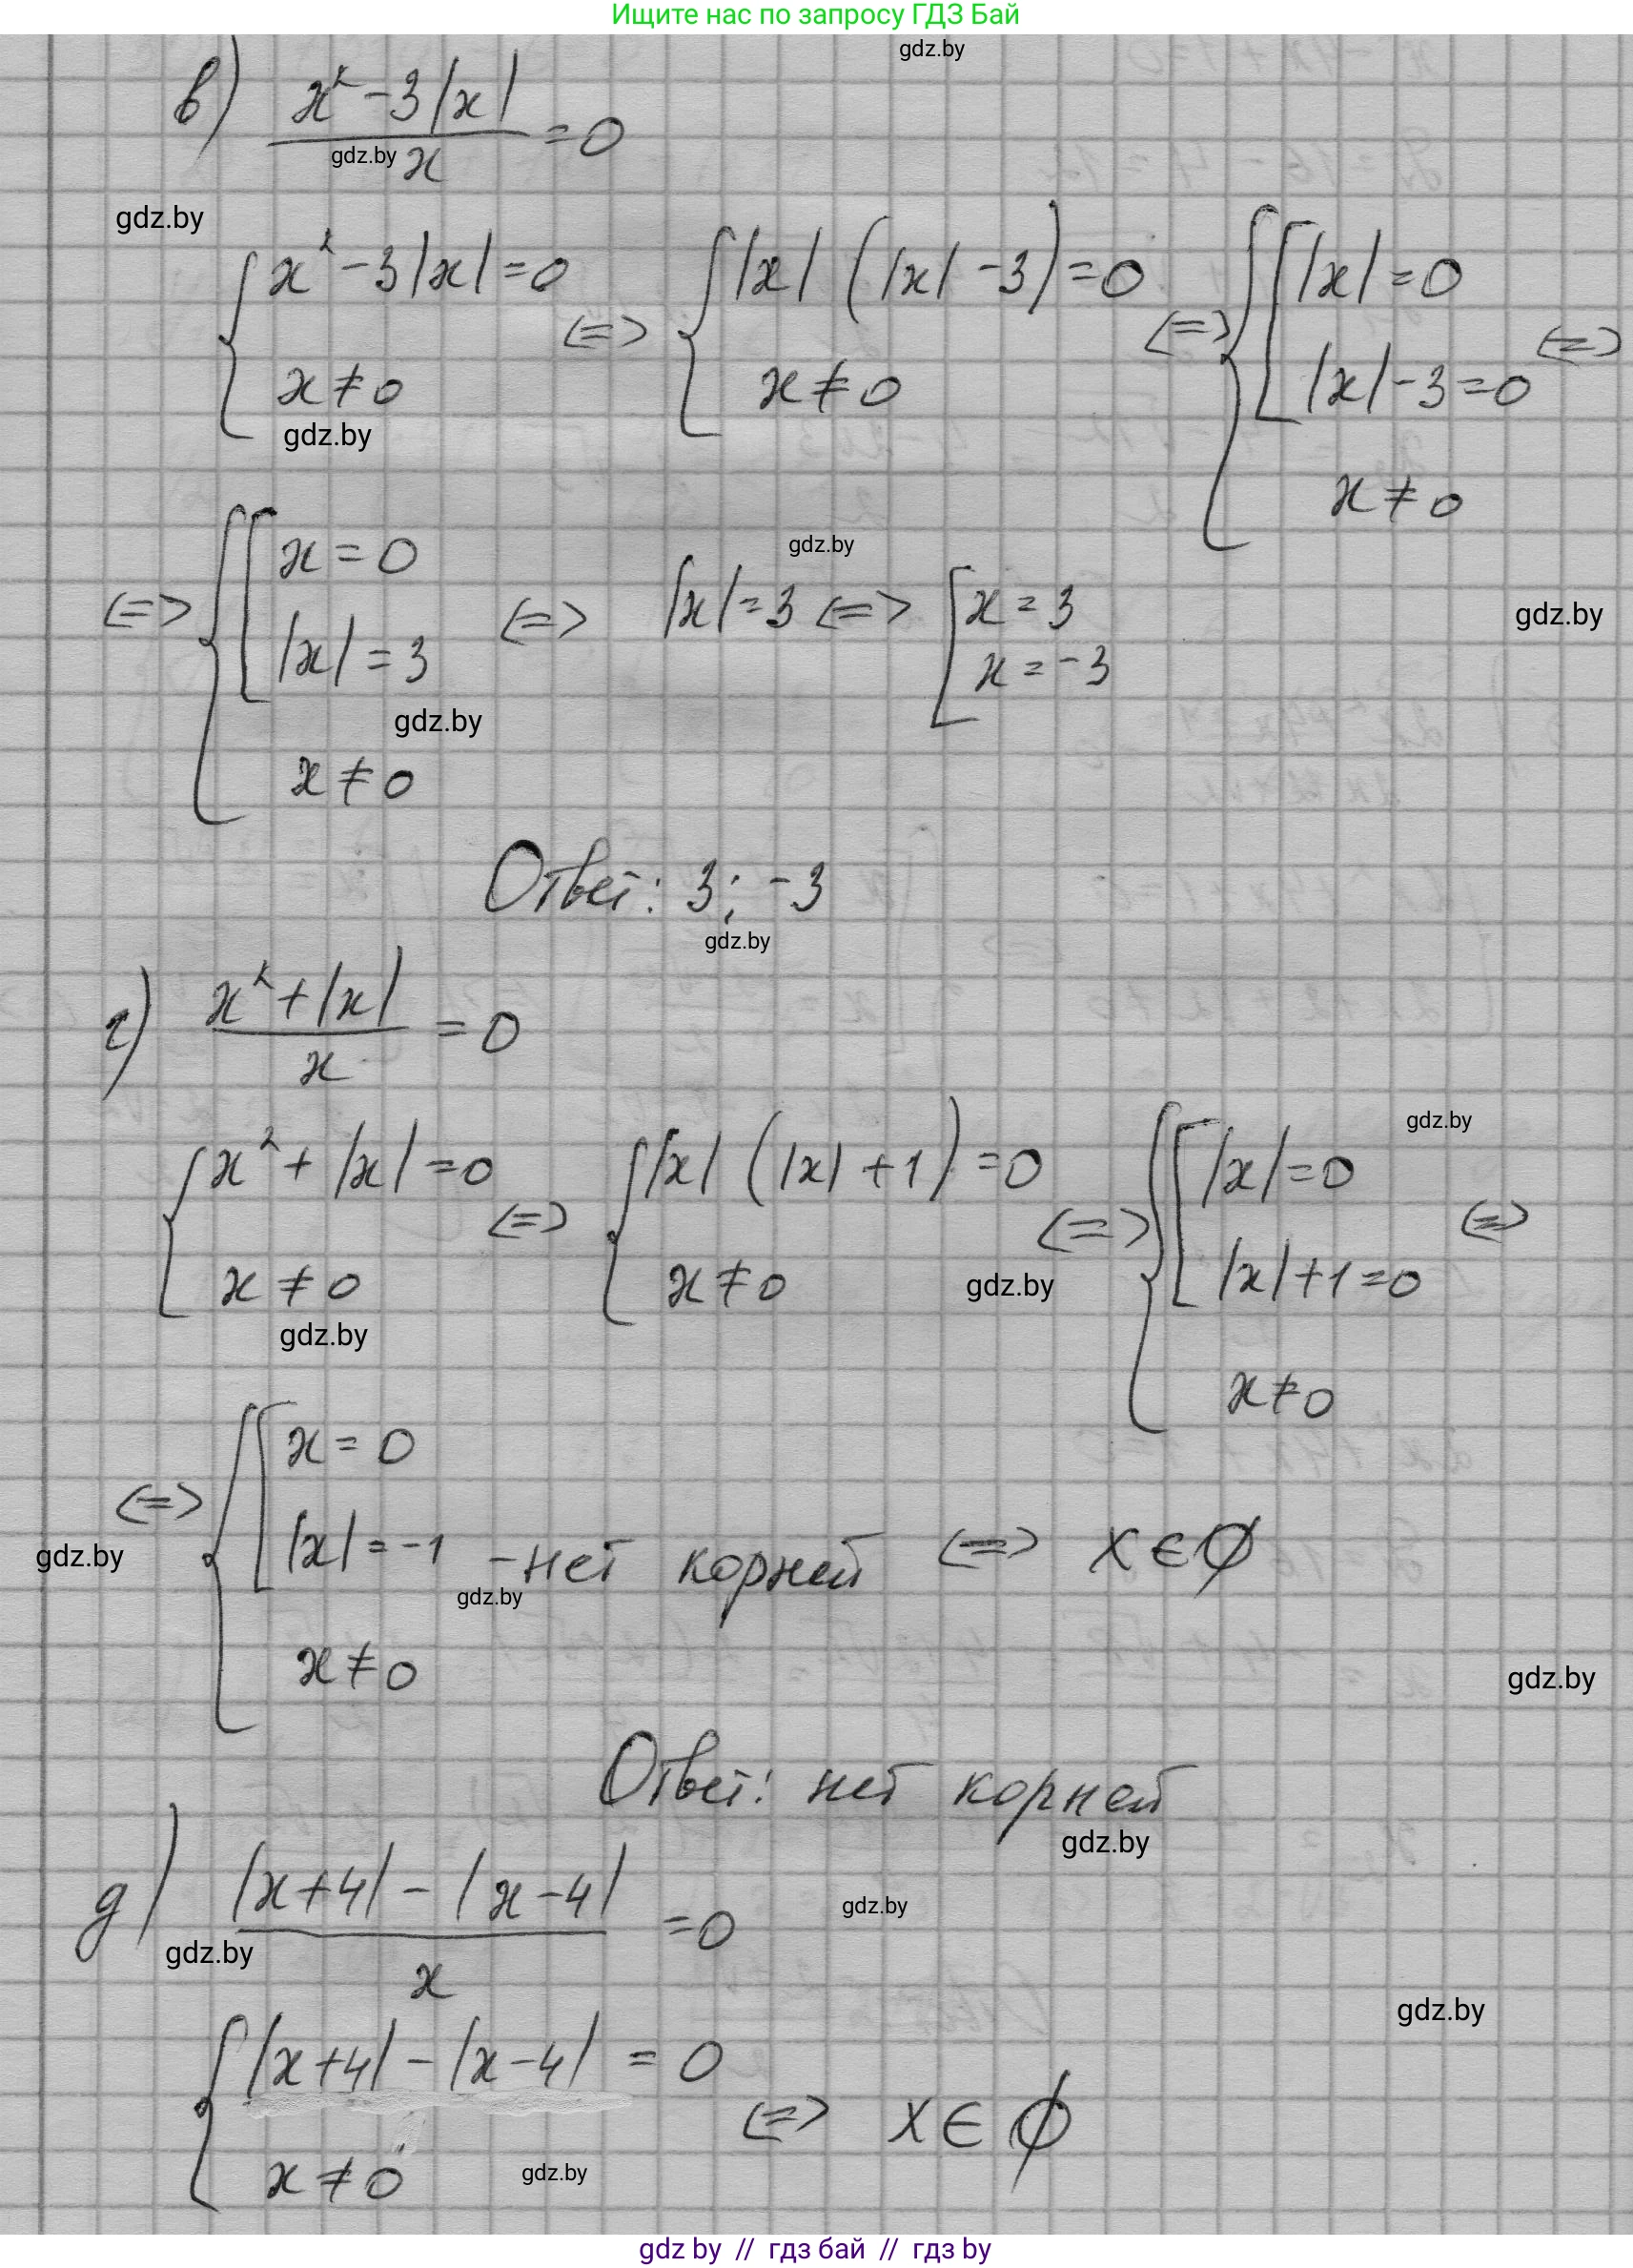 Ищите нас по запросу ГДЗ Бай
gdz.by
в) (x² - 3|x|)/x = 0
gdz.by
gdz.by
{ x² - 3|x| = 0; x ≠ 0 <=> { |x| (|x| - 3) = 0; x ≠ 0 <=> { [ |x| = 0; |x| - 3 = 0; x ≠ 0 <=>
gdz.by
gdz.by
<=> { [ x = 0; |x| = 3; x ≠ 0 <=> |x| = 3 <=> [ x = 3; x = -3
gdz.by
gdz.by
Ответ: 3; -3
gdz.by
г) (x² + |x|)/x = 0
gdz.by
{ x² + |x| = 0; x ≠ 0 <=> { |x| (|x| + 1) = 0; x ≠ 0 <=> { [ |x| = 0; |x| + 1 = 0; x ≠ 0 <=>
gdz.by
gdz.by
<=> { [ x = 0; |x| = -1 - нет корней; x ≠ 0 <=> x ∈ ∅
gdz.by
gdz.by
gdz.by
Ответ: нет корней
gdz.by
д) (|x+4| - |x-4|)/x = 0
gdz.by
gdz.by
gdz.by
{ |x+4| - |x-4| = 0; x ≠ 0 <=> x ∈ ∅
gdz.by
gdz by // гдз бай // гдз by